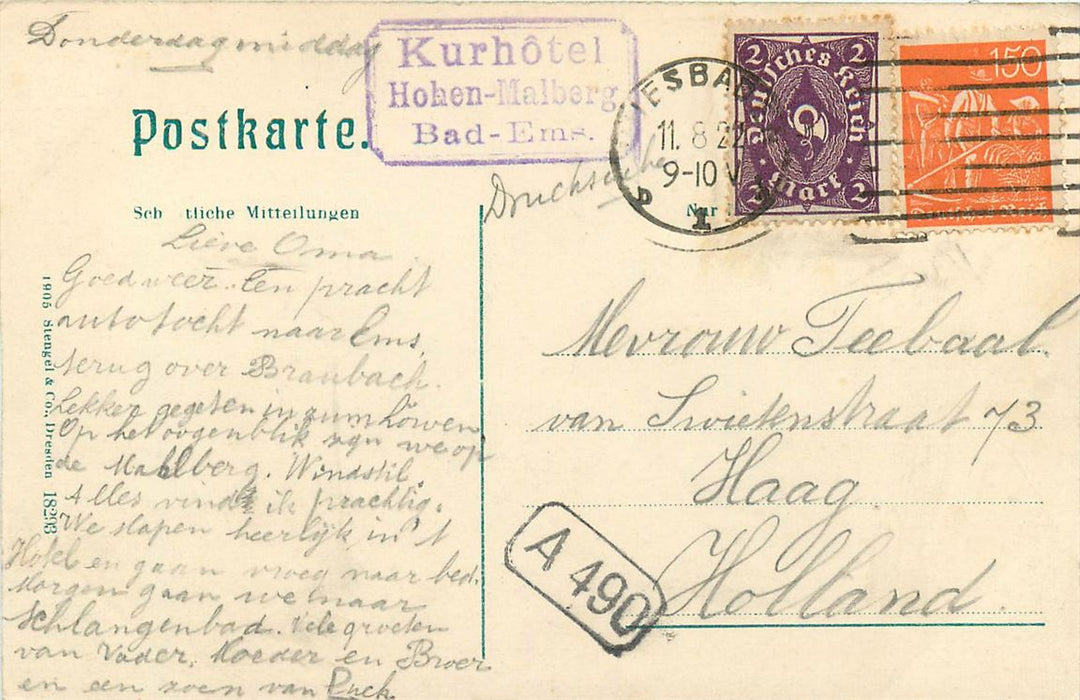 Donderdagmiddag
Kurhôtel
Hohen-Malberg
Bad-Ems.
Postkarte.
Drucksache
WIESBAD
11. 8 22
9-10 V
b 1
2 2
Deutsches Reich
Mark
2 2
150
Deutsches Reich
Sch tliche Mitteilungen
Nur
Lieve Oma
Goed weer. Een pracht
autotocht naar Ems,
terug over Braubach.
Lekker gegeten in zum Löwen
Op het oogenblik zyn we op
de Mahlberg. Windstil.
Alles vind ik prachtig.
We slapen heerlijk in 't
Hotel en gaan vroeg naar bed.
Morgen gaan we naar
Schlangenbad. Vele groeten
van Vader, Moeder en Broer
en een zoen van Puck
1905 Stengel & Co., Dresden 18293
Mevrouw Teebaal.
van Swietenstraat 73
Haag.
Holland.
A 490